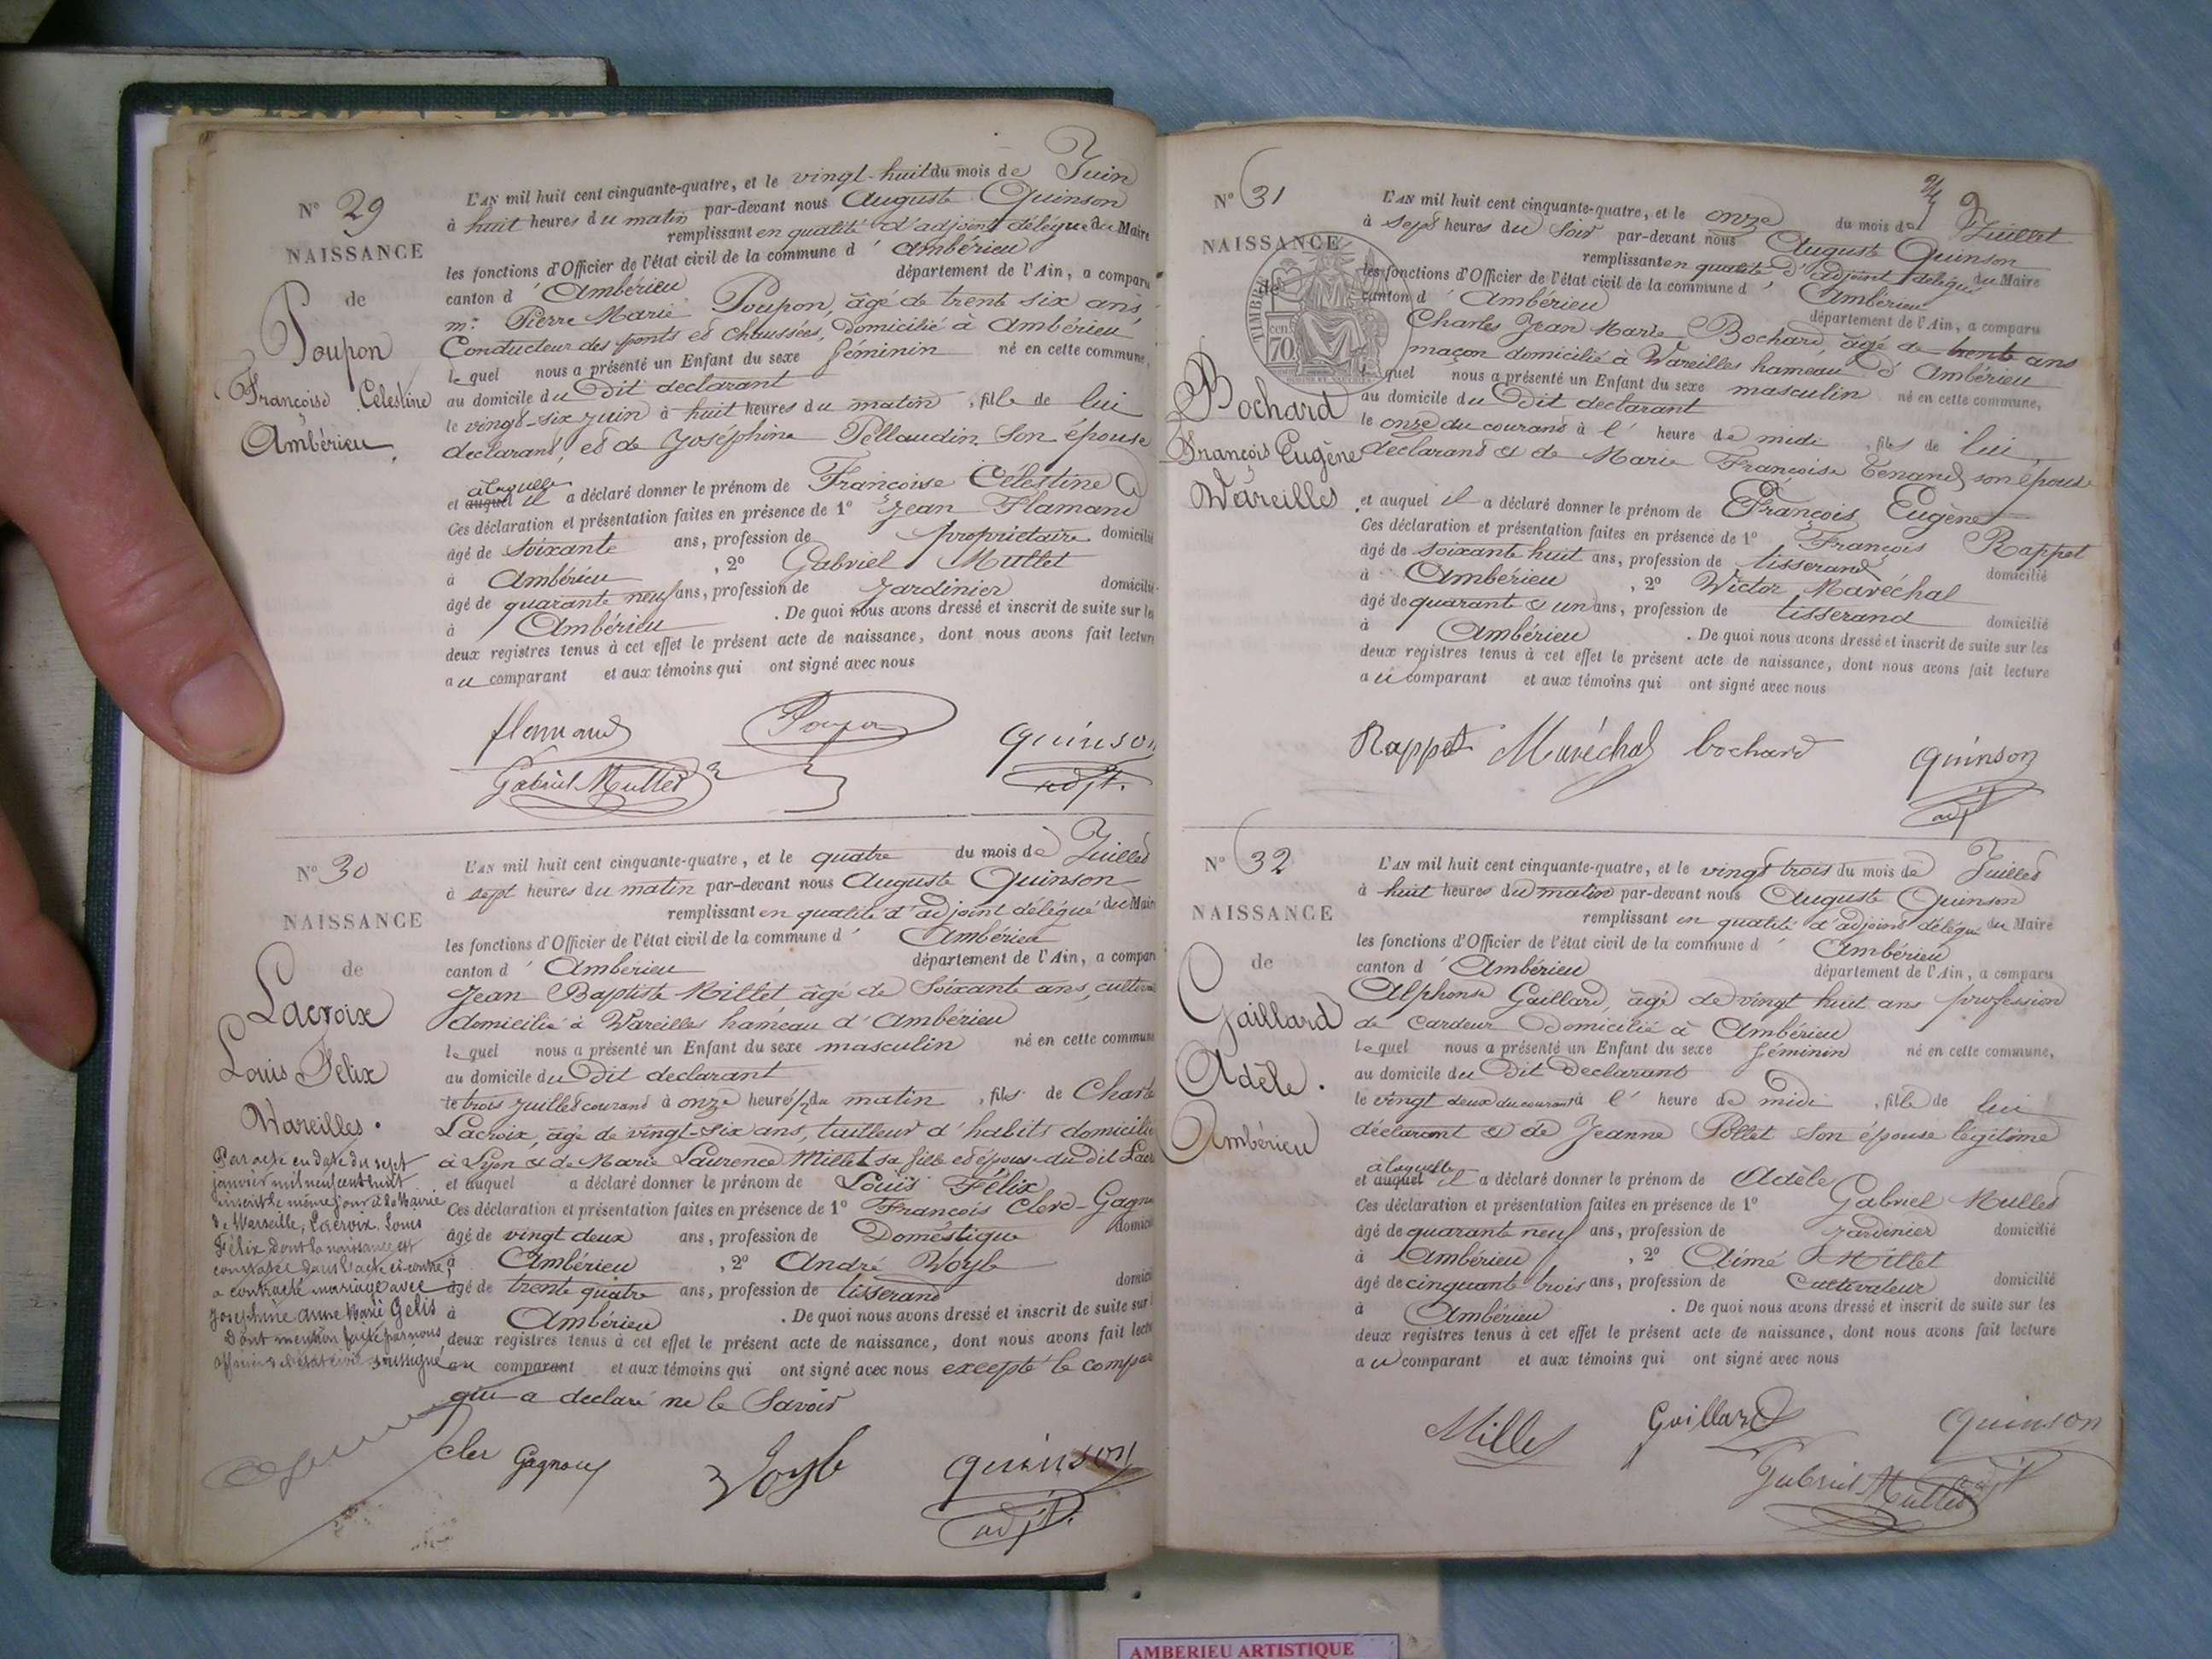 N° 29
NAISSANCE
de
Poupon
Françoise Célestine
Ambérieu
L'AN mil huit cent cinquante-quatre, et le vingt-huit du mois de Juin
à huit heures du matin par-devant nous Auguste Quinson
remplissant en qualité d'adjoint délégué du Maire
les fonctions d'Officier de l'état civil de la commune d' Ambérieu
canton d' Ambérieu département de l'Ain, a comparu
mr Pierre Marie Poupon, âgé de trente six ans,
Conducteur des ponts et chaussées, domicilié à Ambérieu
lequel nous a présenté un Enfant du sexe féminin né en cette commune,
au domicile du Dit declarant
le vingt-six juin à huit heures du matin, fille de lui
declarant, et de Joséphine Pellaudin son épouse
à laquelle
et auquel il a déclaré donner le prénom de Francoise Célestine
Ces déclaration et présentation faites en présence de 1° Jean Flamand
âgé de soixante ans, profession de propriétaire domicilié
à Ambérieu, 2° Gabriel Mullet
âgé de quarante neuf ans, profession de jardinier domicilié
à Ambérieu. De quoi nous avons dressé et inscrit de suite sur les
deux registres tenus à cet effet le présent acte de naissance, dont nous avons fait lecture
au comparant et aux témoins qui ont signé avec nous
flamand Poupon quinson
Gabriel Mullet adjt.
N° 30
NAISSANCE
de
Lacroix
Louis Félix
Vareilles.
Par acte en date du sept
janvier mil neuf cent huit
inscrit le même jour à la Mairie
de Marseille, Lacroix Louis
Félix dont la naissance est
constatée dans l'acte ci-contre,
a contracté mariage avec
Joséphine Anne Marie Gelis
Dont mention faite par nous
officier de l'état civil soussigné
L'AN mil huit cent cinquante-quatre, et le quatre du mois de Juillet
à sept heures du matin par-devant nous Auguste Quinson
remplissant en qualité d'adjoint délégué du Maire
les fonctions d'Officier de l'état civil de la commune d' Ambérieu
canton d' Ambérieu département de l'Ain, a comparu
Jean Baptiste Millet âgé de Soixante ans, cultiva
domicilié à Vareilles hameau d'Ambérieu
lequel nous a présenté un Enfant du sexe masculin né en cette commune
au domicile du Dit declarant
le trois juillet courant à onze heures 1/2 du matin, fils de Charle
Lacroix, âgé de vingt-six ans, tailleur d'habits domicilié
à Lyon et de Marie Laurence Millet sa fille et épouse du dit Lacr
et auquel a déclaré donner le prénom de Louis Félix
Ces déclaration et présentation faites en présence de 1° François Clerc-Gagn
âgé de vingt deux ans, profession de Domestique domicil
à Ambérieu, 2° André Voyle
âgé de trente quatre ans, profession de tisserand domici
à Ambérieu. De quoi nous avons dressé et inscrit de suite sur
deux registres tenus à cet effet le présent acte de naissance, dont nous avons fait lectu
au comparant et aux témoins qui ont signé avec nous excepté le compar
qui a declaré ne le savoir
cler Gagnoux Voyle quinson
adjt.
N° 31
NAISSANCE
de
TIMBRE
70 cen
Bochard
François Eugène
Vareilles
2
L'AN mil huit cent cinquante-quatre, et le onze du mois de Juillet
à sept heures du soir par-devant nous Auguste Quinson
remplissant en qualité d'adjoint délégué du Maire
les fonctions d'Officier de l'état civil de la commune d' Ambérieu
canton d' Ambérieu département de l'Ain, a comparu
Charles Jean Marie Bochard, âgé de trente ans
maçon domicilié à Vareilles hameau d'Ambérieu
lequel nous a présenté un Enfant du sexe masculin né en cette commune,
au domicile du Dit declarant
le onze du courant à l' heure de midi, fils de lui
declarant et de Marie Françoise Tenand son épouse
et auquel il a déclaré donner le prénom de François Eugène
Ces déclaration et présentation faites en présence de 1° François Rappet
âgé de soixante huit ans, profession de tisserand domicilié
à Ambérieu, 2° Victor Maréchal
âgé de quarante et un ans, profession de tisserand domicilié
à Ambérieu. De quoi nous avons dressé et inscrit de suite sur les
deux registres tenus à cet effet le présent acte de naissance, dont nous avons fait lecture
au comparant et aux témoins qui ont signé avec nous
Rappet Maréchal bochard quinson
adjt
N° 32
NAISSANCE
de
Gaillard
Adèle.
Ambérieu
L'AN mil huit cent cinquante-quatre, et le vingt trois du mois de Juillet
à huit heures du matin par-devant nous Auguste Quinson
remplissant en qualité d'adjoint délégué du Maire
les fonctions d'Officier de l'état civil de la commune d' Ambérieu
canton d' Ambérieu département de l'Ain, a comparu
Alphonse Gaillard, âgé de vingt huit ans profession
de cardeur Domicilié à Ambérieu
lequel nous a présenté un Enfant du sexe féminin né en cette commune,
au domicile du Dit Declarant
le vingt deux du courant à l' heure de midi, fille de lui
déclarant et de Jeanne Pollet son épouse légitime
à laquelle
et auquel il a déclaré donner le prénom de Adèle
Ces déclaration et présentation faites en présence de 1° Gabriel Mullet
âgé de quarante neuf ans, profession de jardinier domicilié
à Ambérieu, 2° Aimé Millet
âgé de cinquante trois ans, profession de Cultivateur domicilié
à Ambérieu. De quoi nous avons dressé et inscrit de suite sur les
deux registres tenus à cet effet le présent acte de naissance, dont nous avons fait lecture
au comparant et aux témoins qui ont signé avec nous
Millet Gaillard quinson
Gabriel Mullet adjt
AMBERIEU ARTISTIQUE